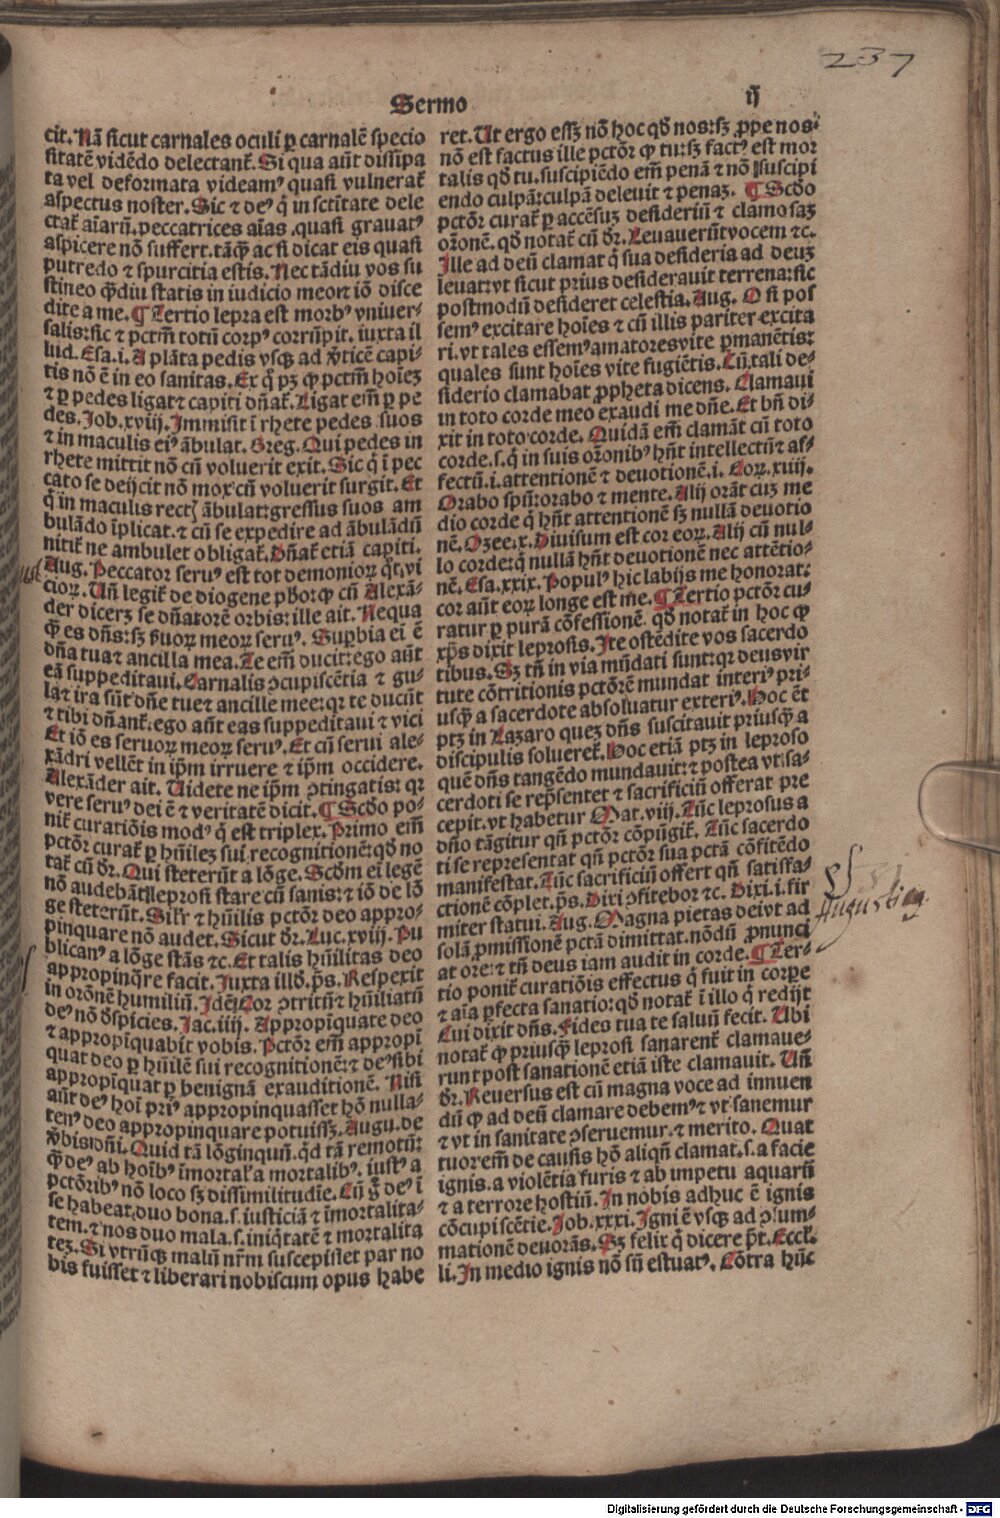 237
Sermo ij
cit. Nā sicut carnales oculi ꝑ carnalē specio
sitatē vidēdo delectanť. Si qua aūt dissipa
ta vel deformata videamꝰ quasi vulnerať
aspectus noster. Sic ⁊ deꝰ q̇ in sctītate dele
ctať aīarū. peccatrices aīas .quasi grauatꝰ
aspicere nō suffert. tāq̄ꝫ ac si dicat eis quasi
putredo ⁊ spurcitia estis. Nec tādiu vos su
stineo q̄ꝫdiu statis in iudicio meoꝛ⁊ iō disce
dite a me. ¶ Tertio lepra est morbꝰ vniuer-
salis: sic ⁊ pctm̄ totū corpꝰ corrūpit. iuxta il
lud. Esa. i. A plāta pedis vsqꝫ ad ṽticē capi-
tis nō ē in eo sanitas. Ex q̇ pꝫ ꝙ pctm̄ hoīeꝫ
⁊ ꝑ pedes ligat⁊ capiti dn̄ať. Ligat em̄ ꝑ pe
des. Job. xviij. Immisit ī rhete pedes suos
⁊ in maculis eiꝰ ābulat. Greg. Qui pedes in
rhete mittit nō cū voluerit exit. Sic q̇ ī pec
cato se deijcit nō mox cū voluerit surgit. Et
q̇ in maculis rectꝭ ābulat: gressus suos am
bulādo īplicat. ⁊ cū se expedire ad ābulādū
nitiť ne ambulet obligať. Dn̄ať etiā capiti.
Aug. Peccator seruꝰ est tot demonioꝝ q̇t. vi
cioꝝ. Un̄ legiť de diogene pħo: ꝙ cū Alexā-
der diceret se dn̄atorē orbis: ille ait. Nequa
q̄ꝫ es dn̄s: sꝫ ẜuoꝝ meoꝝ seruꝰ. Suꝑbia ei ē
dn̄a tua⁊ ancilla mea. Te em̄ ducit: ego aūt
eā suppeditaui. Carnalis ꝯcupiscētia ⁊ gu-
la⁊ ira sūt dn̄e tue⁊ ancille mee: qꝛ te ducūt
⁊ tibi dn̄anť: ego aūt eas suppeditaui ⁊ vici
Et iō es seruoꝝ meoꝝ seruꝰ. Et cū serui ale-
xādri vellēt in ip̄m irruere ⁊ ip̄m occidere.
Alexāder ait. Uidete ne ip̄m ꝯtingatis: qꝛ
vere seruꝰ dei ē ⁊ veritatē dicit. ¶ Scd̄o po-
niť curatiōis modꝰ q̇ est triplex. Primo em̄
pctōr curať ꝑ hūileꝫ sui recognitionē: qd̄ no
tať cū dr̄. Qui steterūt a lōge. Scdm̄ ei legē
nō audebāt leprosi stare cū sanis: ⁊ iō de lō
ge steterūt. Sil̄r ⁊ hūilis pctōr deo appro-
pinquare nō audet. Sicut dr̄. Luc. xviij. Pu
blicanꝰ a lōge stās ⁊c. Et talis hūilitas deo
appropinq̄re facit. Juxta illd̄. ps̄. Respexit
in orōnē humiliū. Idē. Cor ꝯtritū⁊ hūiliatū
deꝰ nō d̓spicies. Jac. iiij. Appropīquate deo
⁊ appropīquabit vobis. Pctōr em̄ appropī
quat deo ꝑ hūilē sui recognitionē: ⁊ deꝰ sibi
appropīquat ꝑ benignā exauditionē. Nisi
aūt deꝰ hoī priꝰ appropinquasset hō nulla-
tenꝰ deo appropinquare potuissꝫ. Augu. de
ṽbis dn̄i. Quid tā lōginquū. qd̄ tā remotū:
q̄ꝫ deꝰ ab hoībꝰ īmortať a mortalibꝰ. iustꝰ a
pctōribꝰ nō loco sꝫ dissimilitudīe. Cū ġ deꝰ ī
se habeat duo bona. s. iusticiā ⁊ īmortalita-
tem. ⁊ nos duo mala. s. iniq̇tatē ⁊ mortalita
teꝫ. Si vtrūqꝫ malū nr̄m suscepisset par no
bis fuisset ⁊ liberari nobiscum opus habe
ret. Ut ergo essꝫ nō hoc qd̄ nos: sꝫ ꝓpe nos-
nō est factus ille pctōr ꝙ tu: sꝫ factꝰ est mor
talis qd̄ tu. suscipiēdo em̄ penā ⁊ nō suscipi
endo culpā: culpā deleuit ⁊ penaꝫ. ¶ Scd̄o
pctōr curať ꝑ accēsuꝫ desideriū ⁊ clamosaꝫ
orōnē. qd̄ notať cū dr̄. Leuauerūt vocem ⁊c.
Ille ad deū clamat q̇ sua desideria ad deuꝫ
leuat: vt sicut prius desiderauit terrena: sic
postmodū desideret celestia. Aug. O si pos
semꝰ excitare hoīes ⁊ cū illis pariter excita
ri. vt tales essemꝰ amatores vite ꝑmanētis:
quales sunt hoīes vite fugiētis. Cū tali de-
siderio clamabat ꝓpheta dicens. Clamaui
in toto corde meo exaudi me dn̄e. Et bn̄ di-
xit in toto corde. Quidā em̄ clamāt cū toto
corde. s. q̇ in suis orōnibꝰ hn̄t intellectū⁊ af-
fectū. i. attentionē ⁊ deuotionē. i. Coꝝ. xiiij.
Orabo spū: orabo ⁊ mente. Alij orāt cuꝫ me
dio corde q̇ hn̄t attentionē sꝫ nullā deuotio
nē. Ozee. x. Diuisum est cor eoꝝ. Alij cū nul-
lo corde: q̇ nullā hn̄t deuotionē nec attētio-
nē. Esa. xxix. Populꝰ hic labijs me honorat:
cor aūt eoꝝ longe est me. ¶ Tertio pctōr cu-
ratur ꝑ purā cōfessionē. qd̄ notať in hoc ꝙ
xp̄s dixit leprosis. Ite ostēdite vos sacerdo
tibus. Sꝫ tn̄ in via mūdati sunt: qꝛ deus vir
tute cōtritionis pctōrē mundat interiꝰ pri-
usq̄ꝫ a sacerdote absoluatur exteriꝰ. Hoc ēt
ptꝫ in Lazaro queꝫ dn̄s suscitauit priusq̄ꝫ a
discipulis soluereť. Hoc etiā ptꝫ in leproso
quē dn̄s tangēdo mundauit: ⁊ postea vt sa-
cerdoti se rep̄sentet ⁊ sacrificiū offerat pre
cepit. vt habetur Mat. viij. Tūc leprosus a
dn̄o tāgitur qn̄ pctōr cōpūgiť. Tūc sacerdo
ti se representat qn̄ pctōr sua pctā cōfitēdo
manifestat. Tūc sacrificiū offert qn̄ satisfa-
ctionē cōplet. ps̄. Dixi ꝯfitebor ⁊c. Dixi. i. fir
miter statui. Aug. Magna pietas dei vt ad
solā ꝓmissionē pctā dimittat. nōdū ꝓnunci
at ore: ⁊ tn̄ deus iam audit in corde. ¶ Ter-
tio poniť curatiōis effectus q̇ fuit in corꝑe
⁊ aīa ꝑfecta sanatio: qd̄ notať ī illo q̇ redijt
Cui dixit dn̄s. Fides tua te saluū fecit. Ubi
notať ꝙ priusq̄ꝫ leprosi sanarenť clamaue-
runt post sanationē etiā iste clamauit. Un̄
dr̄. Reuersus est cū magna voce ad innuen
dū ꝙ ad deū clamare debemꝰ⁊ vt sanemur
⁊ vt in sanitate ꝯseruemur. ⁊ merito. Quat
tuor em̄ de causis hō aliqn̄ clamat. s. a facie
ignis. a violētia furis ⁊ ab impetu aquarū
⁊ a terrore hostiū. In nobis adhuc ē ignis
cōcupiscētie. Job. xxxi. Igni ē vsqꝫ ad ꝯsum-
mationē deuorās. Sꝫ felix q̇ dicere pt̄. Eccľ.
li. In medio ignis nō sū estuatꝰ. Cōtra hūc
Augustin9
Digitalisierung gefördert durch die Deutsche Forschungsgemeinschaft - DFG